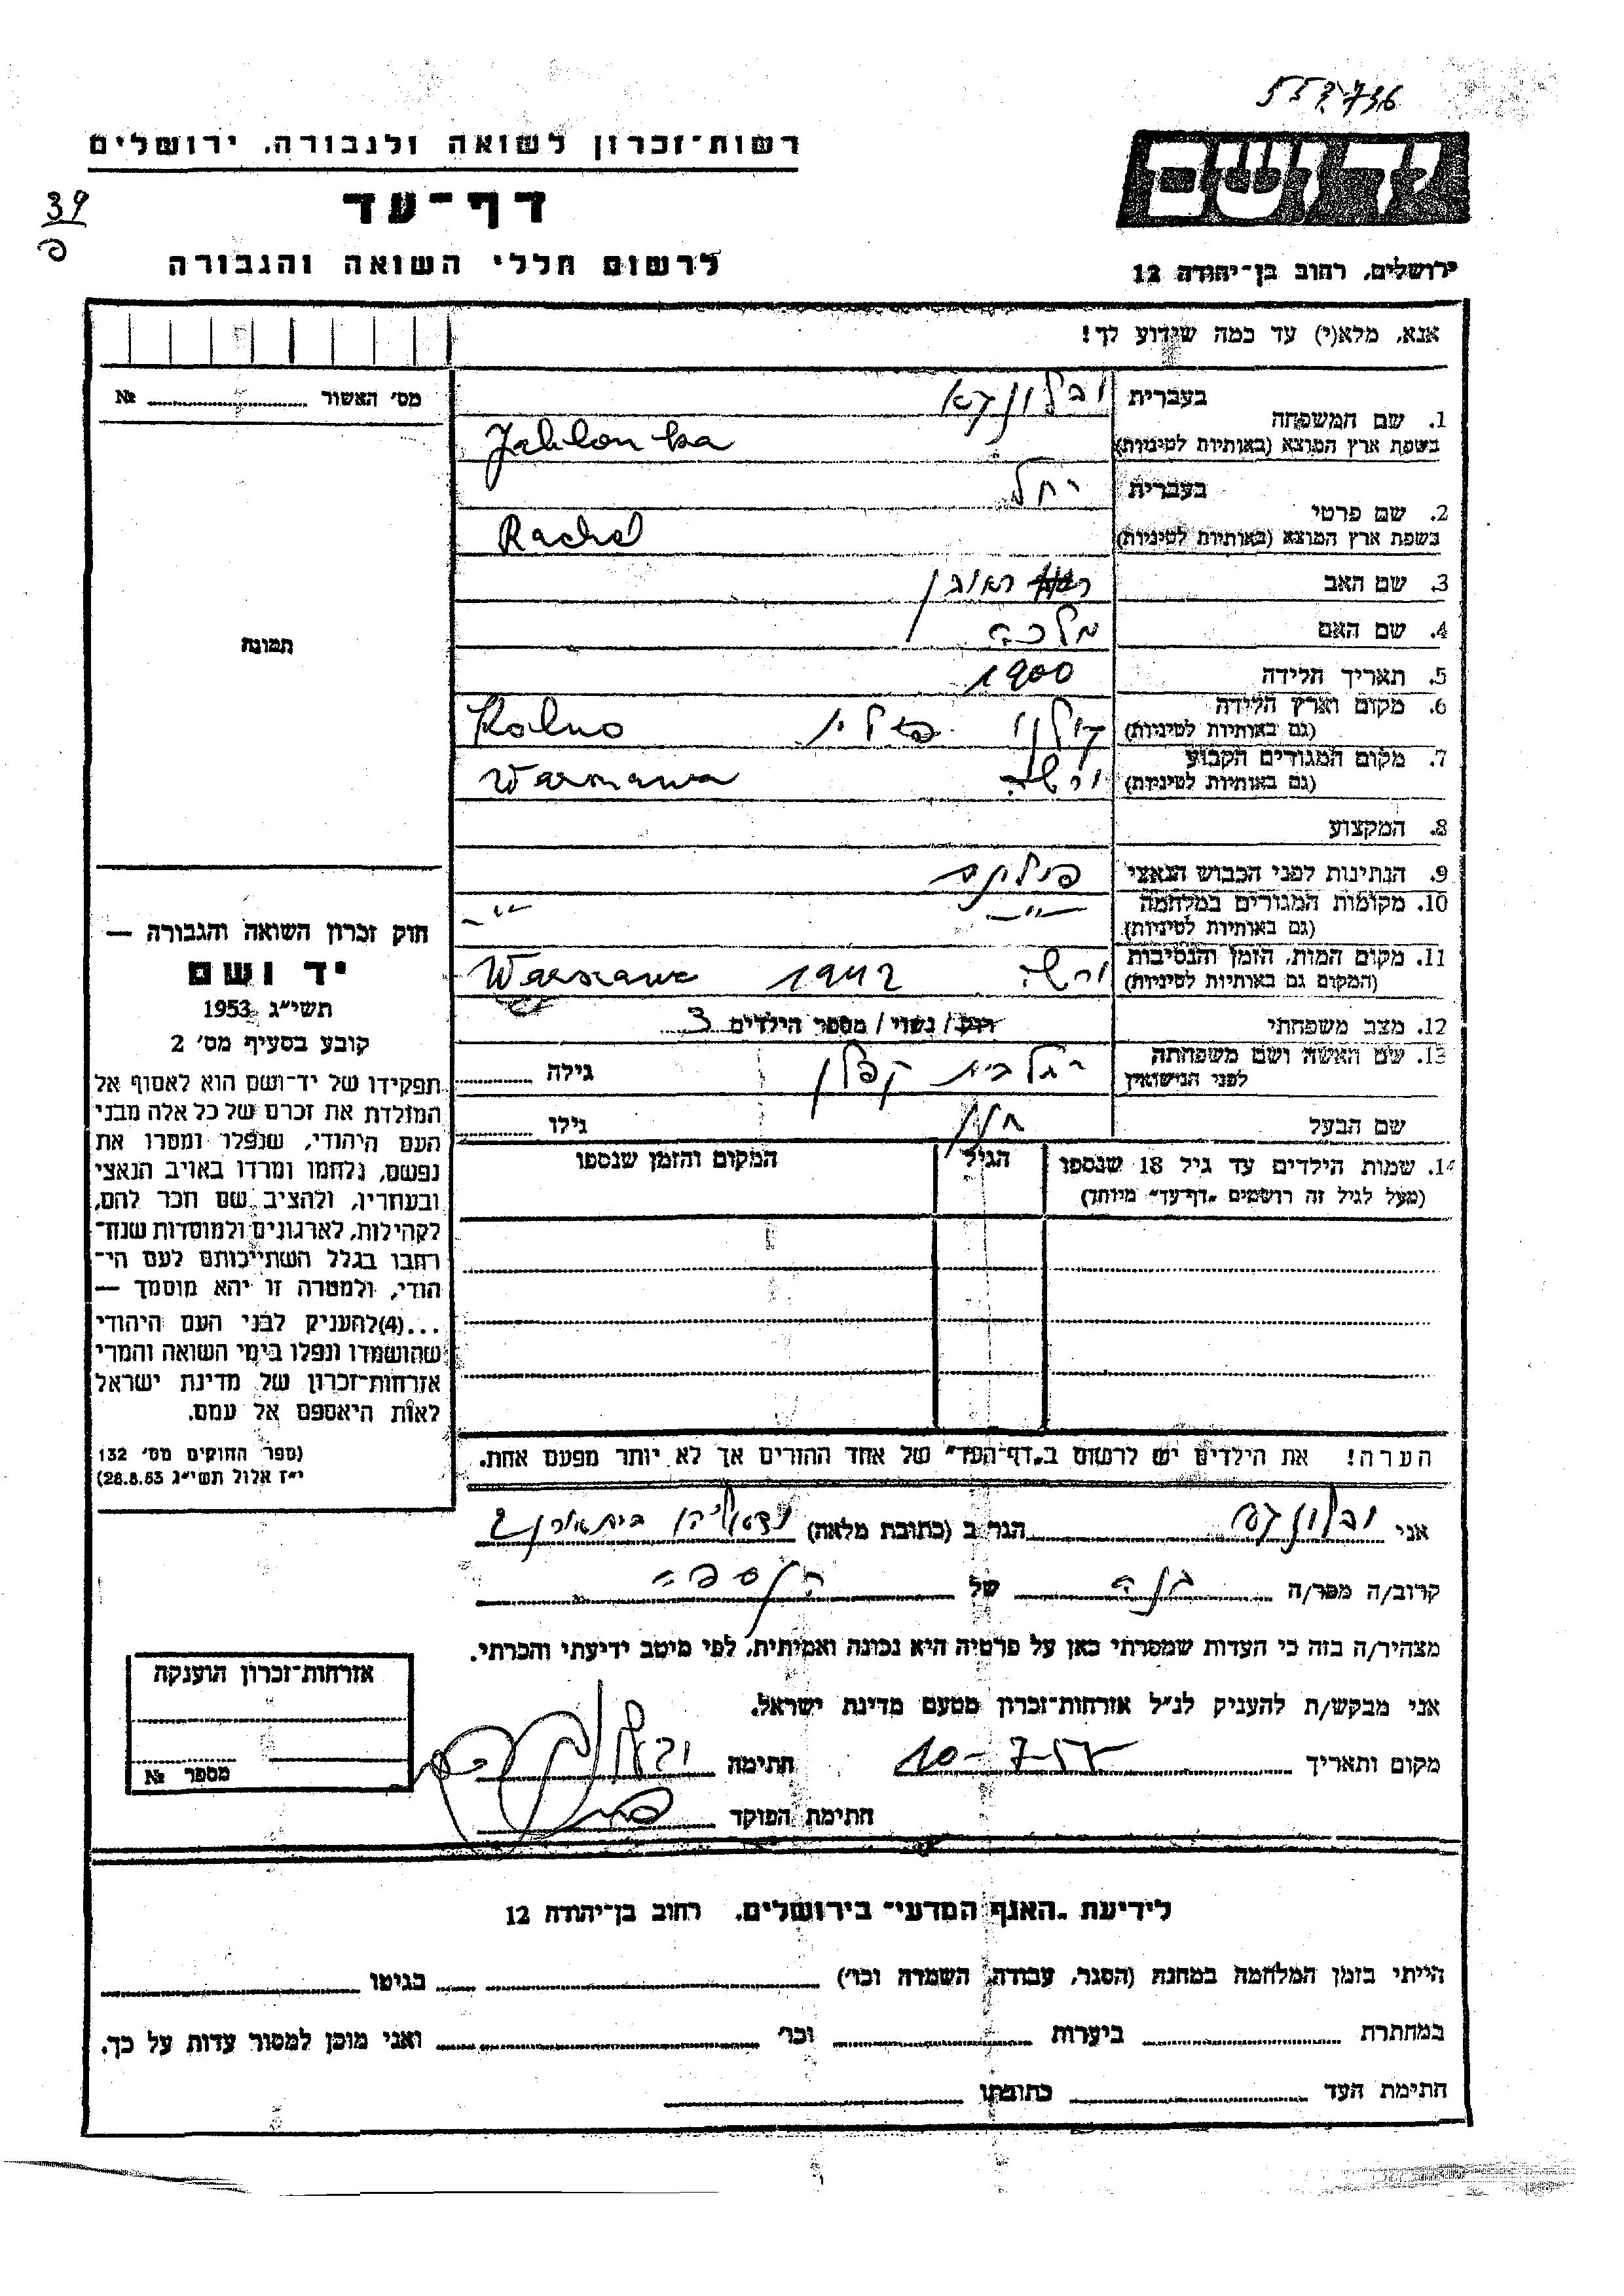 552736
רשות־זכרון לשואה ולגבורה, ירושלים
יד ושם
39
דף־עד
לרשום חללי השואה והגבורה
ירושלים, רחוב בן־יהודה 12
אנא, מלא(י) עד כמה שידוע לך!
מס׳ האשור № 
1. שם המשפחה בעברית
בשפת ארץ המוצא (באותיות לטיניות) Jablonka
2. שם פרטי בעברית רחל
בשפת ארץ המוצא (באותיות לטיניות) Rachel
3. שם האב ראובן
4. שם האם מלכה
תמונה
5. תאריך הלידה 1900
6. מקום וארץ הלידה
(גם באותיות לטיניות) קולנו פולין Kolno
7. מקום המגורים הקבוע
(גם באותיות לטיניות) ורשה Warszawa
8. המקצוע
9. הנתינות לפני הכבוש הנאצי פולנית
10. מקומות המגורים במלחמה
(גם באותיות לטיניות) -״- -״-
11. מקום המות, הזמן והנסיבות
(המקום גם באותיות לטיניות) ורשה 1942 Warszawa
12. מצב משפחתי רוק / נשוי / מספר הילדים 3
13. שם האשה ושם משפחתה
לפני הנישואין קפלן גילה
שם הבעל גילו
14. שמות הילדים עד גיל 18 שנספו
(מעל לגיל זה רושמים „דף־עד״ מיוחד)
הגיל
המקום והזמן שנספו
חוק זכרון השואה והגבורה —
יד ושם
תשי״ג 1953
קובע בסעיף מס׳ 2
תפקידו של יד־ושם הוא לאסוף אל
המולדת את זכרם של כל אלה מבני
העם היהודי, שנפלו ומסרו את
נפשם, נלחמו ומרדו באויב הנאצי
ובעוזריו, ולהציב שם וזכר להם,
לקהילות, לארגונים ולמוסדות שנח־
רחבו בגלל השתייכותם לעם הי־
הודי, ולמטרה זו יהא מוסמך —
...(4)להעניק לבני העם היהודי
שהושמדו ונפלו בימי השואה והמרי
אזרחות־זכרון של מדינת ישראל
לאות היאספם אל עמם.
(ספר החוקים מס׳ 132
י״ז אלול תשי״ג 28.8.53)
הערה! את הילדים יש לרשום ב„דף־העד״ של אחד ההורים אך לא יותר מפעם אחת.
אני הגר ב (כתובת מלאה)
קרוב/ה מכר/ה של
מצהיר/ה בזה כי העדות שמסרתי כאן על פרטיה היא נכונה ואמיתית, לפי מיטב ידיעתי והכרתי.
אני מבקש/ת להעניק לנ״ל אזרחות־זכרון מטעם מדינת ישראל.
מקום ותאריך חתימה
חתימת הפוקד
אזרחות־זכרון הוענקה
מספר №
לידיעת „האגף המדעי״ בירושלים, רחוב בן־יהודה 12
הייתי בזמן המלחמה במחנה (הסגר, עבודה, השמדה וכו׳) בגיטו
במחתרת ביערות וכו׳ ואני מוכן למסור עדות על כך.
חתימת העד כתובתו